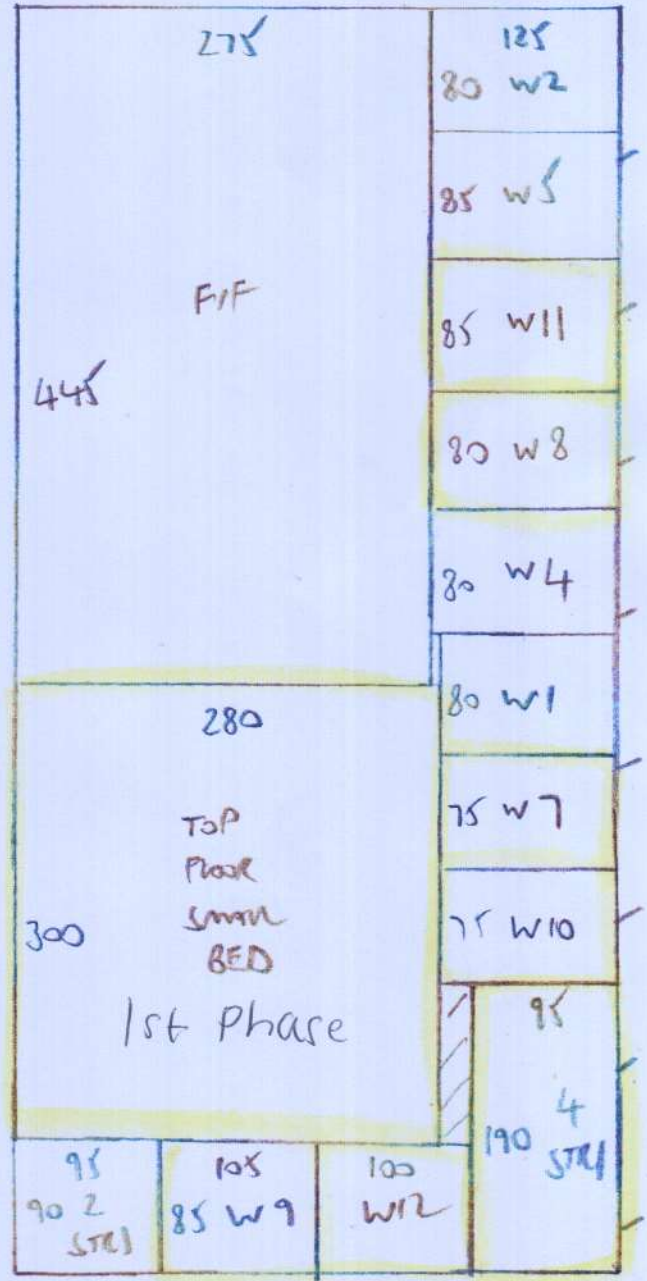 275
F/F
445
125
80 W2
85 W5
85 W11
80 W8
80 W4
80 W1
75 W7
75 W10
280
TOP
FLOOR
SMALL
BED
300
1st Phase
95
190 4
STRS
95
90 2
STRS
105
85 W9
100
W12